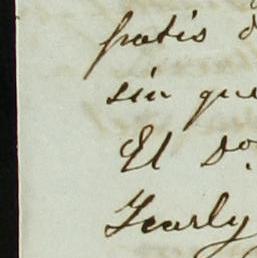 gratis d
sin que
El Do.
Yearly